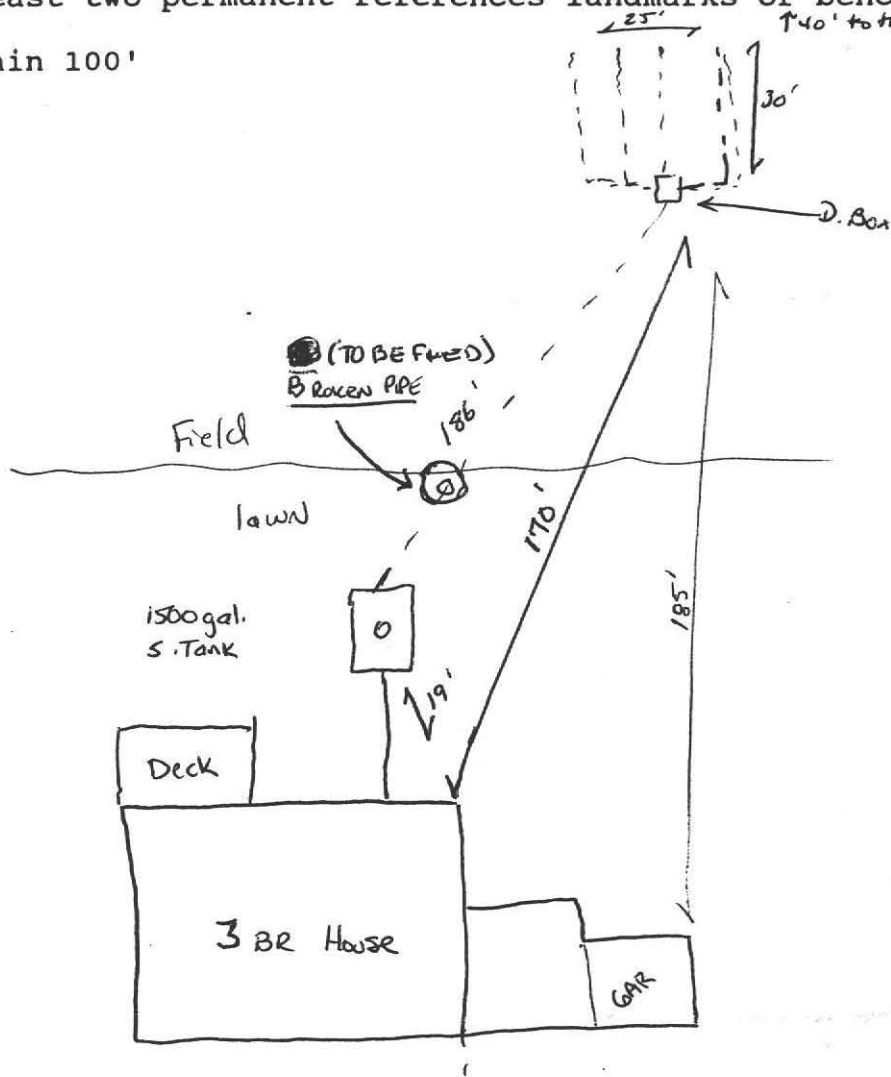 east two permanent references landmarks or benc
hin 100'
25'
↑40' to
30'
D. Box
(TO BE FIXED)
BROKEN PIPE
186'
Field
lawn
170'
185'
1500 gal.
S. Tank
19'
Deck
3 BR House
GAR